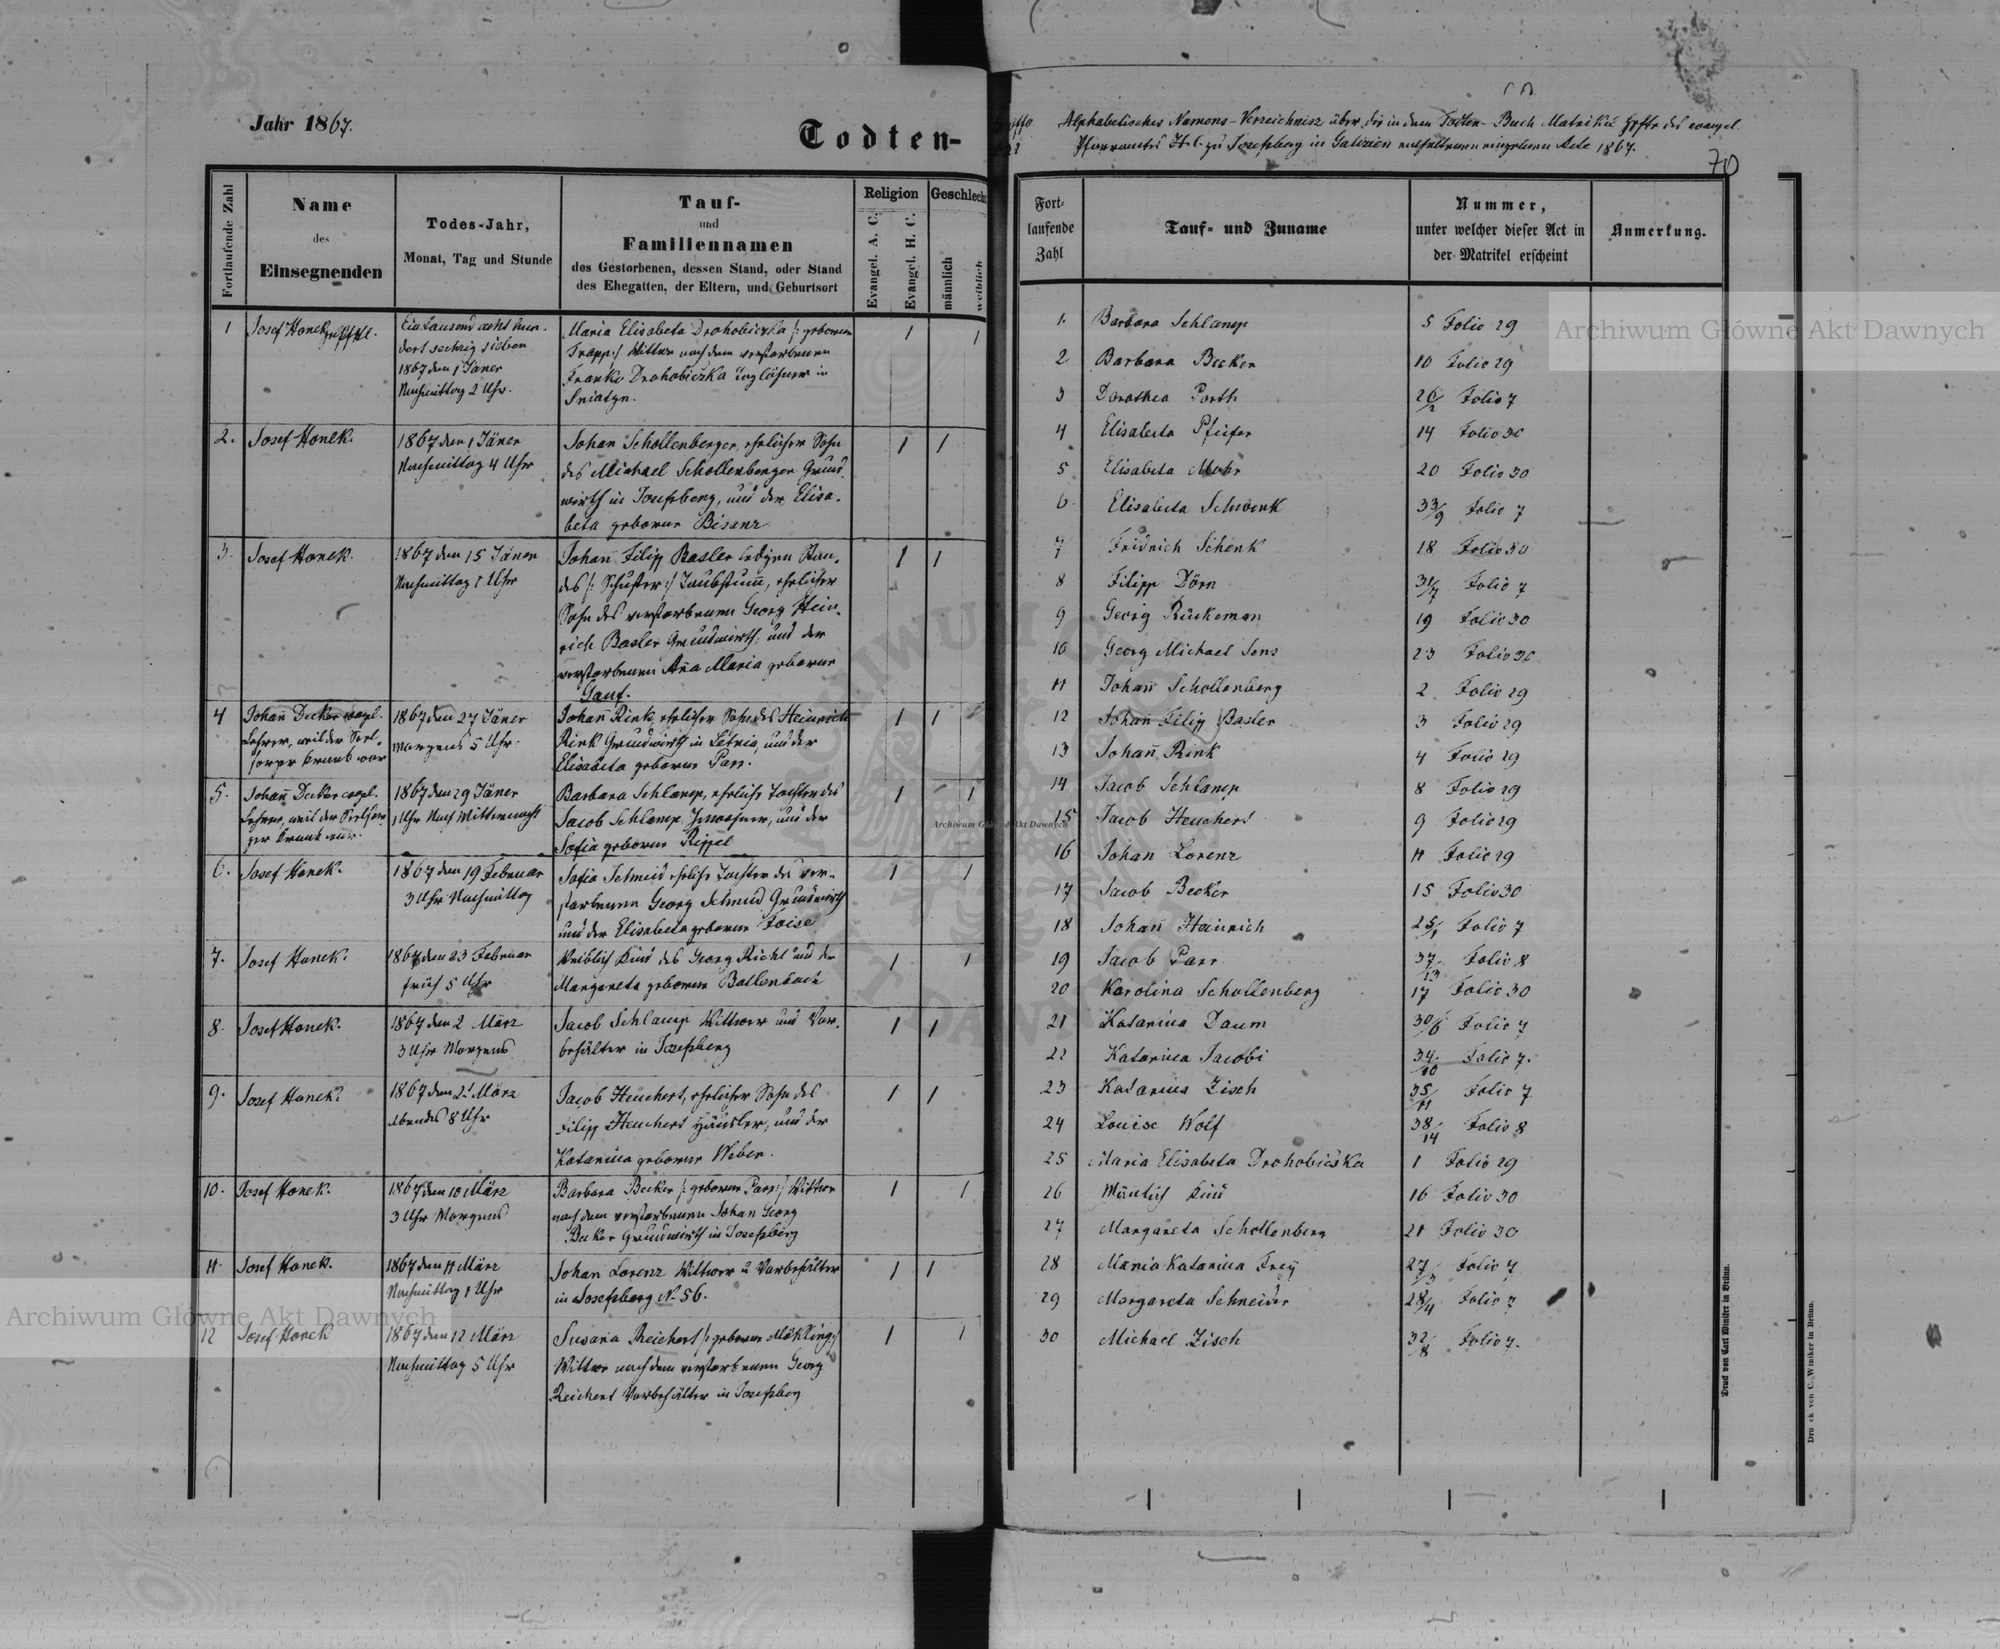 Jahr 1867.
Todten-
Fortlaufende Zahl
Name
des
Einsegnenden
Todes-Jahr,
Monat, Tag und Stunde
Tauf-
und
Familiennamen
des Gestorbenen, dessen Stand, oder Stand
des Ehegatten, der Eltern, und Geburtsort
Religion
Evangel. A. C.
Evangel. H. C.
Geschlecht
männlich
weiblich
1 Josef Hanek
Eintausend acht hun-
dert sechzig sieben
1867 den 1 Jäner
Nachmittag 2 Uhr.
Maria Elisabeta Drohobiczka /: geborene
Trapp :/ Wittwe nach dem verstorbenen
Franko Drohobiczka Taglöhner in
Sniatyn.
1 1
2. Josef Hanek.
1867 den 1 Jäner
Nachmittag 4 Uhr
Johan Schollenberger, ehelicher Sohn
des Michael Schollenberger Grund
wirth in Josefsberg, und der Elisa-
beta geborene Bisanz
1 1
3. Josef Hanek.
1867 den 15 Jäner
Nachmittag 1 Uhr
Johan̄ Filipp Basler ledigen Stan-
des /: Schuster :/ Taubstum̄, ehelicher
Sohn des verstorbenen Georg Hein-
rich Basler Grundwirth, und der
verstorbenen An̄a Maria geborene
Gauf.
1 1
4 Johan̄ Decker evgl.
Lehrer, weil der Seel-
sorger krank war
1867 den 27 Jäner
Morgens 5 Uhr.
Johan̄ Rink, ehelicher Sohn des Heinrich
Rink Grundwirth in Letnia, und der
Elisabeta geborene Parr.
1 1
5. Johan̄ Decker evgl.
Lehrer, weil der Seelsor
ger krank war.
1867 den 29 Jäner
1 Uhr Nach Mitternacht
Barbara Schlamp, eheliche Tochter des
Jacob Schlamp Inwohner, und der
Sofia geborene Rippel
1 1
6. Josef Hanek.
1867 den 19 Februar
3 Uhr Nachmittag
Sofia Schmid eheliche Tochter des ver-
storbenen Georg Schmid Grundwirth
und der Elisabeta geborene
1 1
7. Josef Hanek.
1867 den 23 Februar
früh 5 Uhr
Weiblich Kind des Georg Richl und der
Margareta geborene Ballenbach
1 1
8. Josef Hanek.
1867 den 2 März
3 Uhr Morgens
Jacob Schlamp Wittwer und Vor-
behälter in Josefsberg
1 1
9. Josef Hanek.
1867 den 2 März
Abendes 8 Uhr
Jacob Heuchert, ehelicher Sohn des
Filipp Heuchert Häusler, und der
Katarina geborene Weber.
1 1
10. Josef Hanek.
1867 den 10 März
3 Uhr Morgens
Barbara Becker /: geborene Parr :/ Wittwe
nach dem verstorbenen Johan Georg
Becker Grundwirth in Josefsberg
1 1
11. Josef Hanek.
1867 den 11 März
Nachmittag 1 Uhr
Johan Lorenz Wittwer u Vorbehälter
in Josefsberg N. 56.
1 1
12 Josef Hanek
1867 den 12 März
Nachmittag 5 Uhr
Susana Reichert /: geborene Mökling :/
Wittwe nach dem verstorbenen Georg
Reichert Vorbehälter in Josefsberg
1 1
Alphabetisches Namens-Verzeichnisz über die in dem Todten-Buch Matrikel Hefte des evangel.
Pfarramtes H.C. zu Josefsberg in Galizien enthaltenen eingetragenen Acte 1867.
70
Fort-
laufende
Zahl
Tauf- und Zuname
Nummer,
unter welcher dieser Act in
der Matrikel erscheint
Anmerkung.
1. Barbara Schlamp 5 Folio 29
2 Barbara Becker 10 Folio 29
3 Dorothea Porth 26/2 Folio 7
4 Elisabeta Pfeifer 14 Folio 30
5 Elisabeta Mohr 20 Folio 30
6 Elisabeta Schwenk 33/9 Folio 7
7 Fridrich Schenk 18 Folio 30
8 Filipp Dörn 31/7 Folio 7
9 Georg Rückeman 19 Folio 30
10 Georg Michael Sens 23 Folio 30
11 Johan̄ Schollenberg 2 Folio 29
12 Johan̄ Filipp Basler 3 Folio 29
13 Johan̄ Rink 4 Folio 29
14 Jacob Schlamp 8 Folio 29
15 Jacob Heuchert 9 Folio 29
16 Johan Lorenz 11 Folio 29
17 Jacob Becker 15 Folio 30
18 Johan̄ Heinrich 25/1 Folio 7
19 Jacob Parr 37/13 Folio 8
20 Karolina Schollenberg 17 Folio 30
21 Katarina Daum 30/6 Folio 7
22 Katarina Jacobi 34/10 Folio 7.
23 Katarina Zisch 35/11 Folio 7
24 Louise Wolf 38/14 Folio 8
25 Maria Elisabeta Drohobicska 1 Folio 29
26 Mänlich Kind 16 Folio 30
27 Margareta Schollenberg 21 Folio 30
28 Maria Katarina Frey 27/3 Folio 7
29 Margareta Schneider 28/4 Folio 7
30 Michael Zisch 32/8 Folio 7.
Druck von Carl Winiker in Brünn.
Druck von C. Winiker in Brünn.
Archiwum Główne Akt Dawnych
Archiwum Główne Akt Dawnych
Archiwum Główne Akt Dawnych